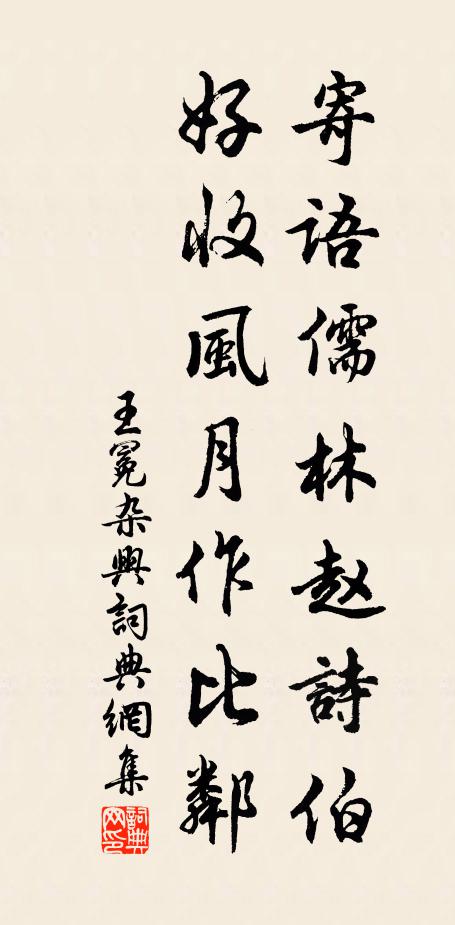 寄語儒林赵詩伯
好收風月作比鄰
王冕杂興詞典網集
詞典网印